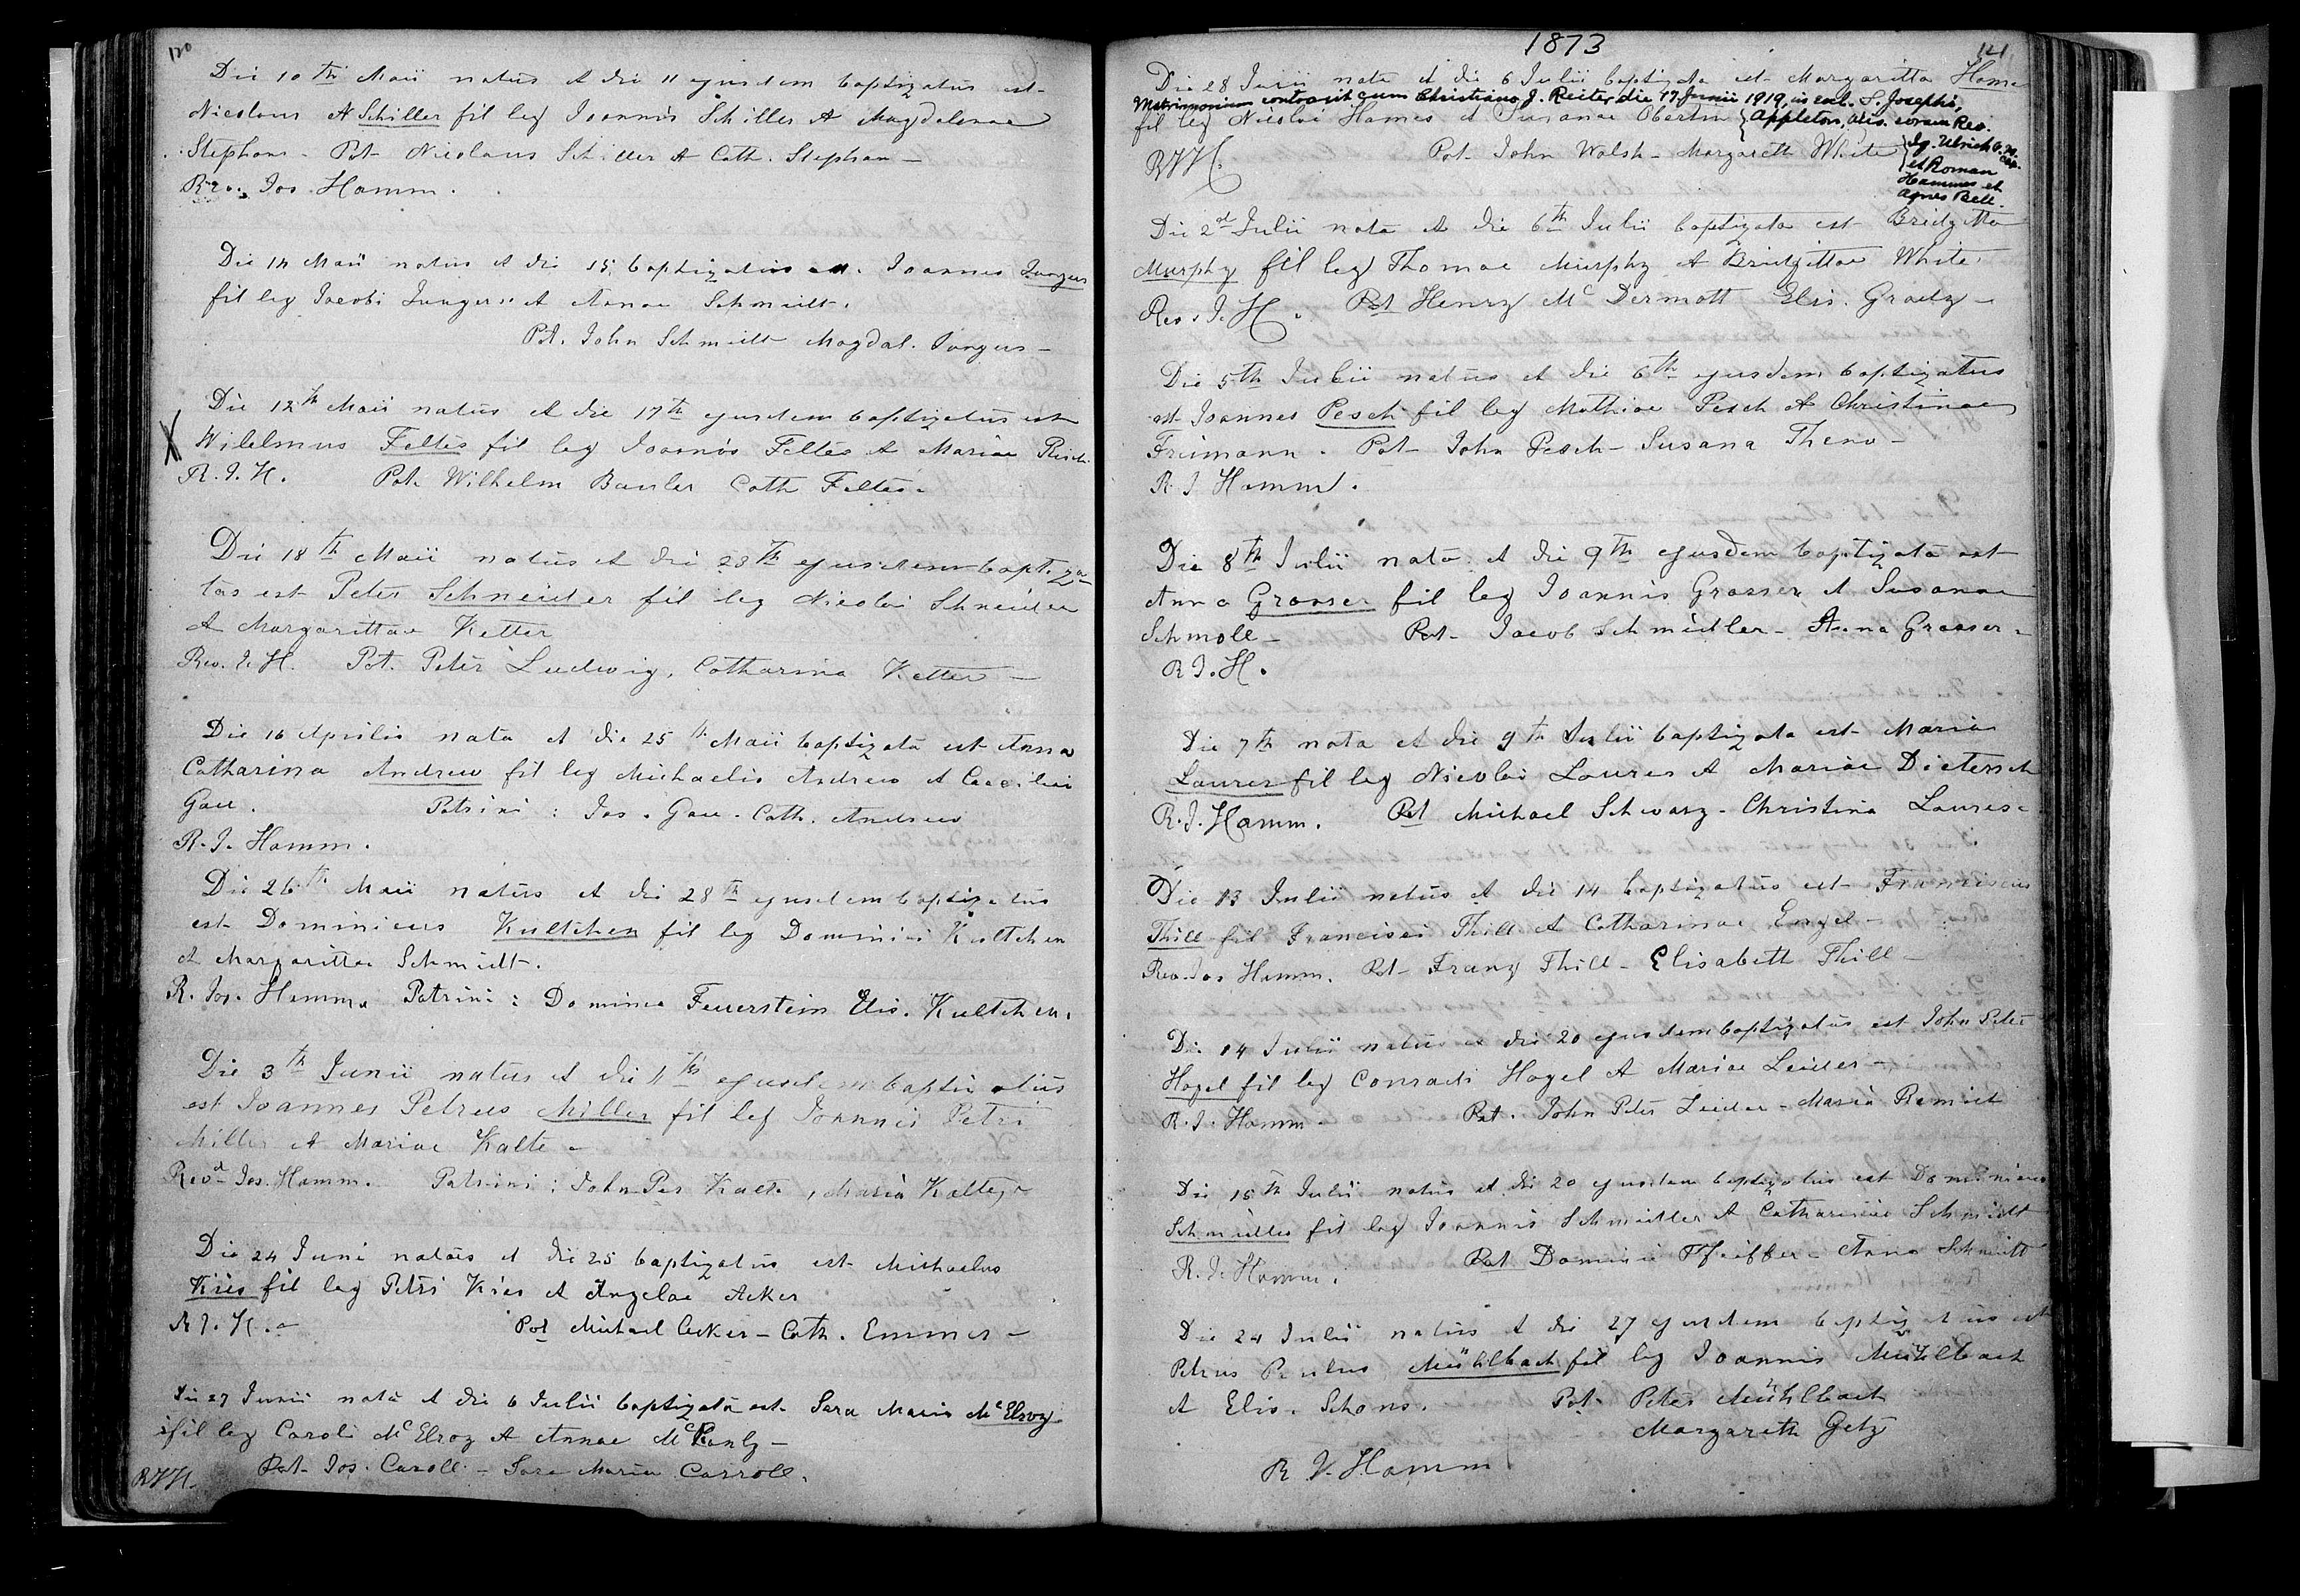 120
Die 10th Maii natus et die 11 ejusdem baptizatus est
Nicolaus A Schiller fil leg Joannis Schiller et Magdalenae
Stephan. Pat Nicolaus Schiller et Cath. Stephan
Rev. Jos. Hamm.
Die 14 Maii natus et die 15 baptizatus est. Joannes Jungers
fil leg Jacobi Jungers et Annae Schmidt.
Pat. John Schmidt Magdal. Jungers
X
Die 12th Maii natus et die 17th ejusdem baptizatus est
Wilelmus Feltes fil leg Joannis Feltes et Mariae Risch
R. J. H. Pat. Wilhelm Bauler Cath Feltes
Die 18th Maii natus et die 23th ejusdem baptiza
tus est Peter Schneider fil leg Nicolai Schneider
et Margarittae Ketter
Rev. J. H. Pat. Peter Ludwig, Catharina Ketter
Die 16 Aprilis nata et die 25th Maii baptizata est Anna
Catharina Andrew fil leg Michaelis Andrew et Caecilia
Gau. Patrini : Jos. Gau. Cath. Andrew
R. J. Hamm.
Die 26th Maii natus et die 28th ejusdem baptizatus
est Dominicus Kultchen fil leg Dominici Kultchen
et Margarittae Schmidt.
R. Jos. Hamm. Patrini : Dominic Feuerstein Elis. Kultchen.
Die 3th Junii natus et die ejusdem baptizatus
est Joannes Petrus Miller fil leg Joannis Petri
Miller et Mariae Kalte
Revd Jos. Hamm. Patrini : John Kalte, Maria Kalte
Die 24 Juni natus et die 25 baptizatus est Michaelus
Kies fil leg Petri Kies et Angelae Acker
R. J. H. Pat Michael Acker - Cath. Emmer
Die 27 Junii nata et die 6 Julii baptizata est Sara Maria McElroy
fil leg Caroli McElroy et Annae
Pat. Jos. Caroll - Sara Maria Carroll.
RJH.
1873
121
Die 28 Junii nata et die 6 Julii baptizata est Margaritta Hames
Matrimonium contraxit cum Christiano J. Reiter die 17 Junii 1919, in eccl. S. Josephi,
fil leg Nicolai Hames et Susanae Obertin { Appleton, Wis. coram Rev.
RJH. Pat. John Walsh - Margareth White { Ig. Ulrich O.M. Cap.
et Roman
Hammes et
Agnes Bell.
Die 2d Julii nata et die 6th Julii baptizata est Bridgitta
Murphy fil leg Thomae Murphy et Bridgittae White
Rev. J. H. Pat Henry McDermott Elis. Graetz
Die 5th Julii natus et die 6th ejusdem baptizatus
est Joannes Pesch fil leg Mathiae Pesch et Christinae
Freimann. Pat John Pesch - Susana Theno
R. J Hamm.
Die 8th Julii nata et die 9th ejusdem baptizata est
Anna Grasser fil leg Joannis Grasser et Susanae
Schmoll Pat. Jacob Schmidler - Anna Grasser
R J. H.
Die 7th nata et die 9th Julii baptizata est Maria
Laures fil leg Nicolai Laures et Mariae Dietersch
R. J. Hamm. Pat Michael Schwarz - Christina Laures
Die 13 Julii natus et die 14 baptizatus est Franciscus
Thill fil Francisci Thill et Catharinae Engel
Rev. Jos Hamm. Pat Franz Thill - Elisabeth Thill
Die 14 Julii natus et die 20 ejusdem baptizatus est John Peter
Hagel fil leg Conradi Hagel et Mariae Leider
R. J. Hamm Pat. John Peter Leider - Maria
Die 15th Julii natus et die 20 ejusdem baptizatus est Dominicus
Schmidler fil leg Joannis Schmidler et Catharinae Schmidt
R. J. Hamm. Pat Dominic Pfeiffer - Anna Schmidt
Die 24 Julii natus et die 27 ejusdem baptizatus est
Petrus Paulus Mühlbach fil leg Joannis Mühlbach
et Elis. Schons. Pat. Peter Mühlbach
Margareth Getz
R J. Hamm